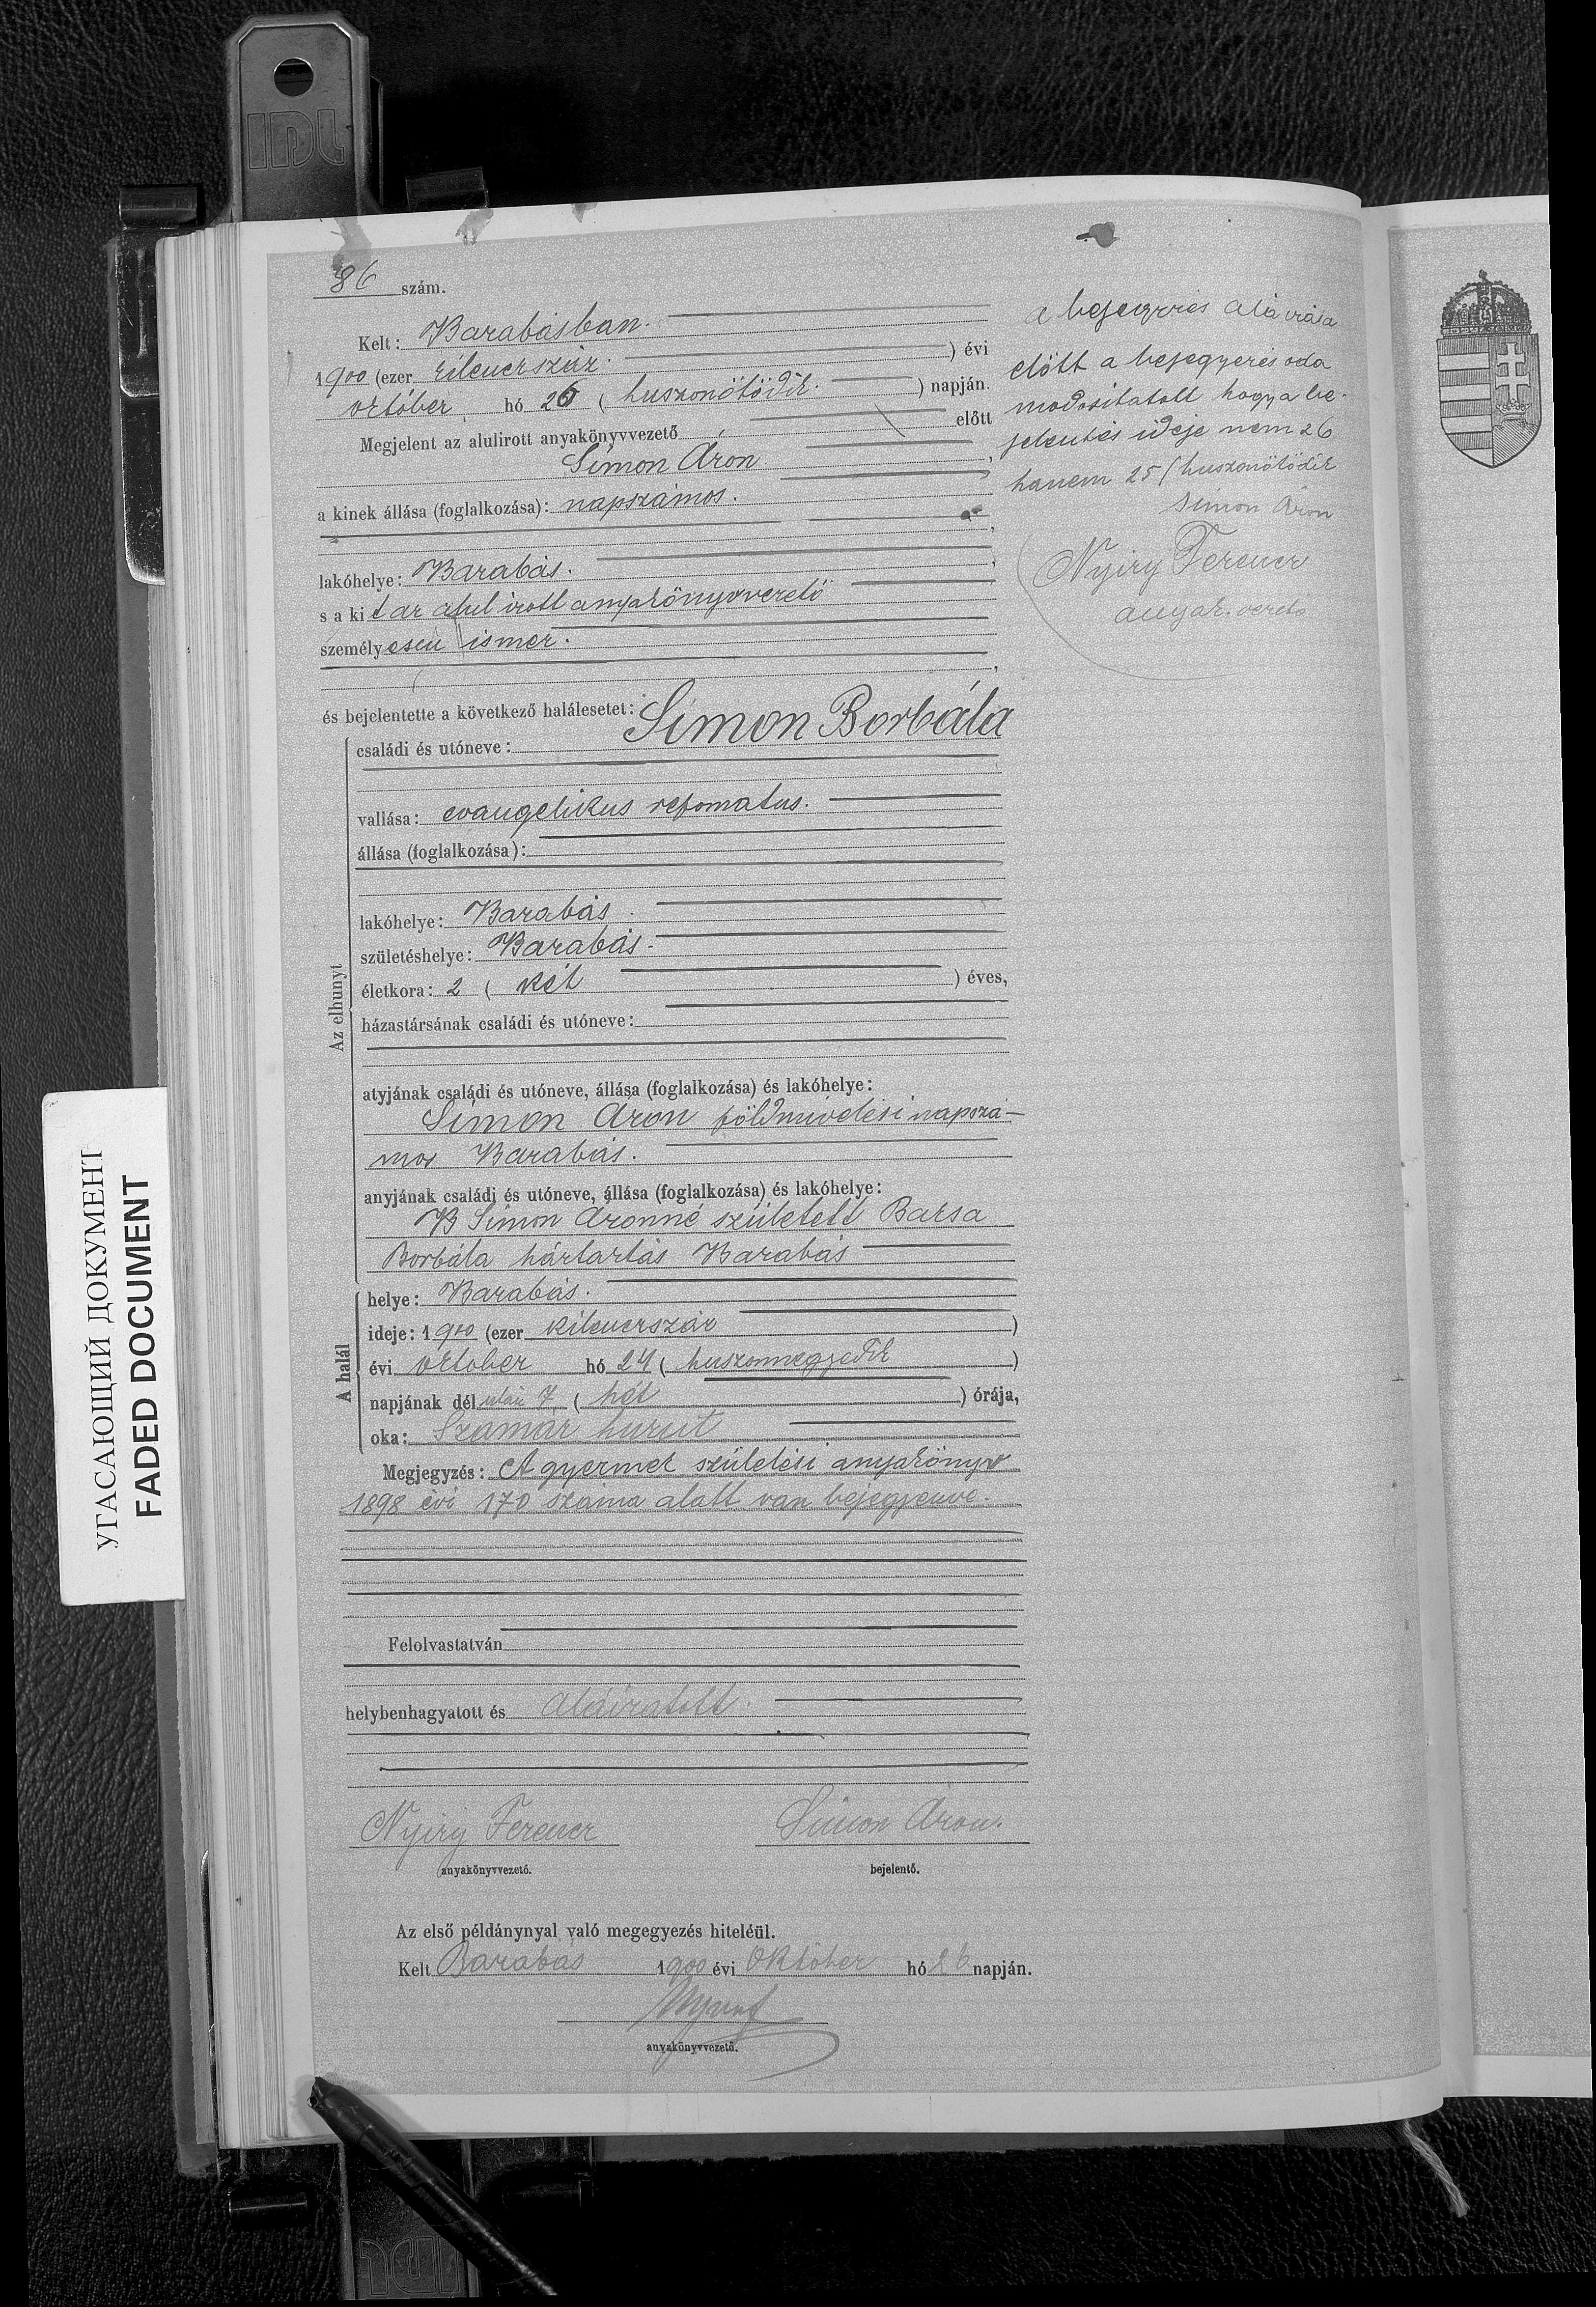 IDL
86 szám.
Kelt: Barabásban.
1900 (ezer kilenczszáz.) évi
október hó 26 (huszonötödik.) napján.
Megjelent az alulirott anyakönyvvezető előtt
Simon Áron,
a kinek állása (foglalkozása): napszámos.
,
lakóhelye: Barabás.,
s a kit az alulirott anyakönyvvezető
személyesen ismer.
,
és bejelentette a következő halálesetet:
családi és utóneve: Simon Borbála
vallása: evangelikus refomatus.
állása (foglalkozása):
lakóhelye: Barabás.
születéshelye: Barabás.
életkora: 2 (két) éves,
házastársának családi és utóneve:
atyjának családi és utóneve, állása (foglalkozása) és lakóhelye:
Simon Áron földmivelési napszá-
mos Barabás.
anyjának családi és utóneve, állása (foglalkozása) és lakóhelye:
B Simon Áronné született Barsa
Borbála háztartás Barabás
Az elhunyt
helye: Barabás.
ideje: 1900 (ezer kilenczszáz)
évi október hó 24 (huszonnegyedik)
napjának dél után 7 (hét) órája,
oka: Szamár hurut
A halál
Megjegyzés: A gyermek születési anyakönyv
1898 évi 170 száma alatt van bejegyezve.
Felolvastatván
helybenhagyatott és aláiratott.
Nyiry Ferencz Simon Áron.
anyakönyvvezető. bejelentő.
Az első példánynyal való megegyezés hiteléül.
Kelt Barabás 1900 évi Október hó 26 napján.
anyakönyvvezető.
a bejegyzés aláirása
előtt a bejegyzés oda
modosittatott hogy a be-
jelentés ideje nem 26
hanem 25 (huszonötödik
Simon Áron
Nyiry Ferencz
anyak. vezető
УГАСАЮЩИЙ ДОКУМЕНТ
FADED DOCUMENT
IDL